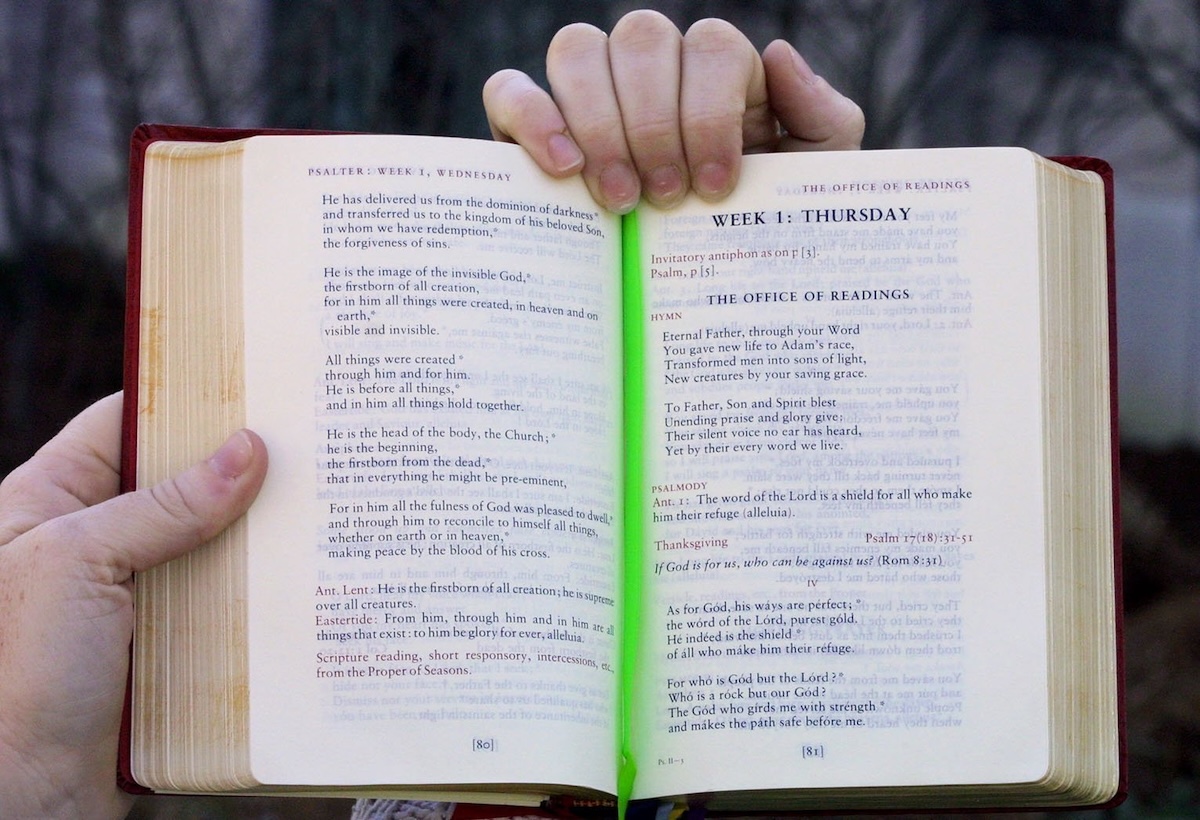 PSALTER: WEEK 1, WEDNESDAY
He has delivered us from the dominion of darkness*
and transferred us to the kingdom of his beloved Son,
in whom we have redemption,*
the forgiveness of sins.
He is the image of the invisible God,*
the firstborn of all creation,
for in him all things were created, in heaven and on
earth,*
visible and invisible.
All things were created *
through him and for him.
He is before all things,*
and in him all things hold together.
He is the head of the body, the Church; *
he is the beginning,
the firstborn from the dead,*
that in everything he might be pre-eminent,
For in him all the fulness of God was pleased to dwell,*
and through him to reconcile to himself all things,
whether on earth or in heaven,*
making peace by the blood of his cross.
Ant. Lent: He is the firstborn of all creation; he is supreme
over all creatures.
Eastertide: From him, through him and in him are all
things that exist: to him be glory for ever, alleluia.
Scripture reading, short responsory, intercessions, etc.,
from the Proper of Seasons.
[80]
THE OFFICE OF READINGS
WEEK 1: THURSDAY
Invitatory antiphon as on p [3].
Psalm, p [5].
THE OFFICE OF READINGS
HYMN
Eternal Father, through your Word
You gave new life to Adam's race,
Transformed men into sons of light,
New creatures by your saving grace.
To Father, Son and Spirit blest
Unending praise and glory give;
Their silent voice no ear has heard,
Yet by their every word we live.
PSALMODY
Ant. 1: The word of the Lord is a shield for all who make
him their refuge (alleluia).
Thanksgiving Psalm 17(18):31-51
If God is for us, who can be against us? (Rom 8:31)
IV
As for Gód, his wáys are pérfect; *
the wórd of the Lórd, purest góld.
Hé indéed is the shield *
of áll who máke him their réfuge.
For whó is Gód but the Lórd? *
Whó is a róck but our Gód?
The Gód who gírds me with stréngth *
and mákes the páth safe befóre me.
Ps. II—3
[81]